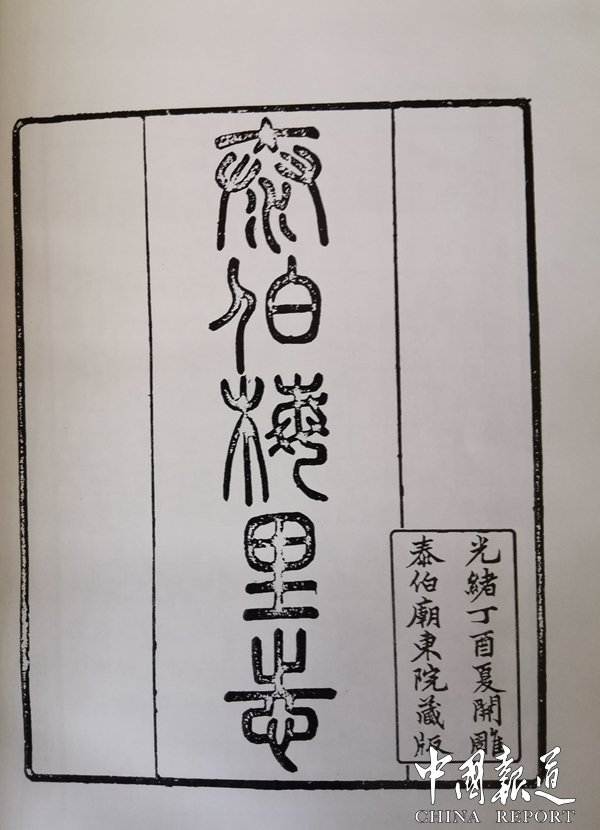 泰伯梅里志
光緒丁酉夏開雕
泰伯廟東院藏版
中國報道
CHINA REPORT